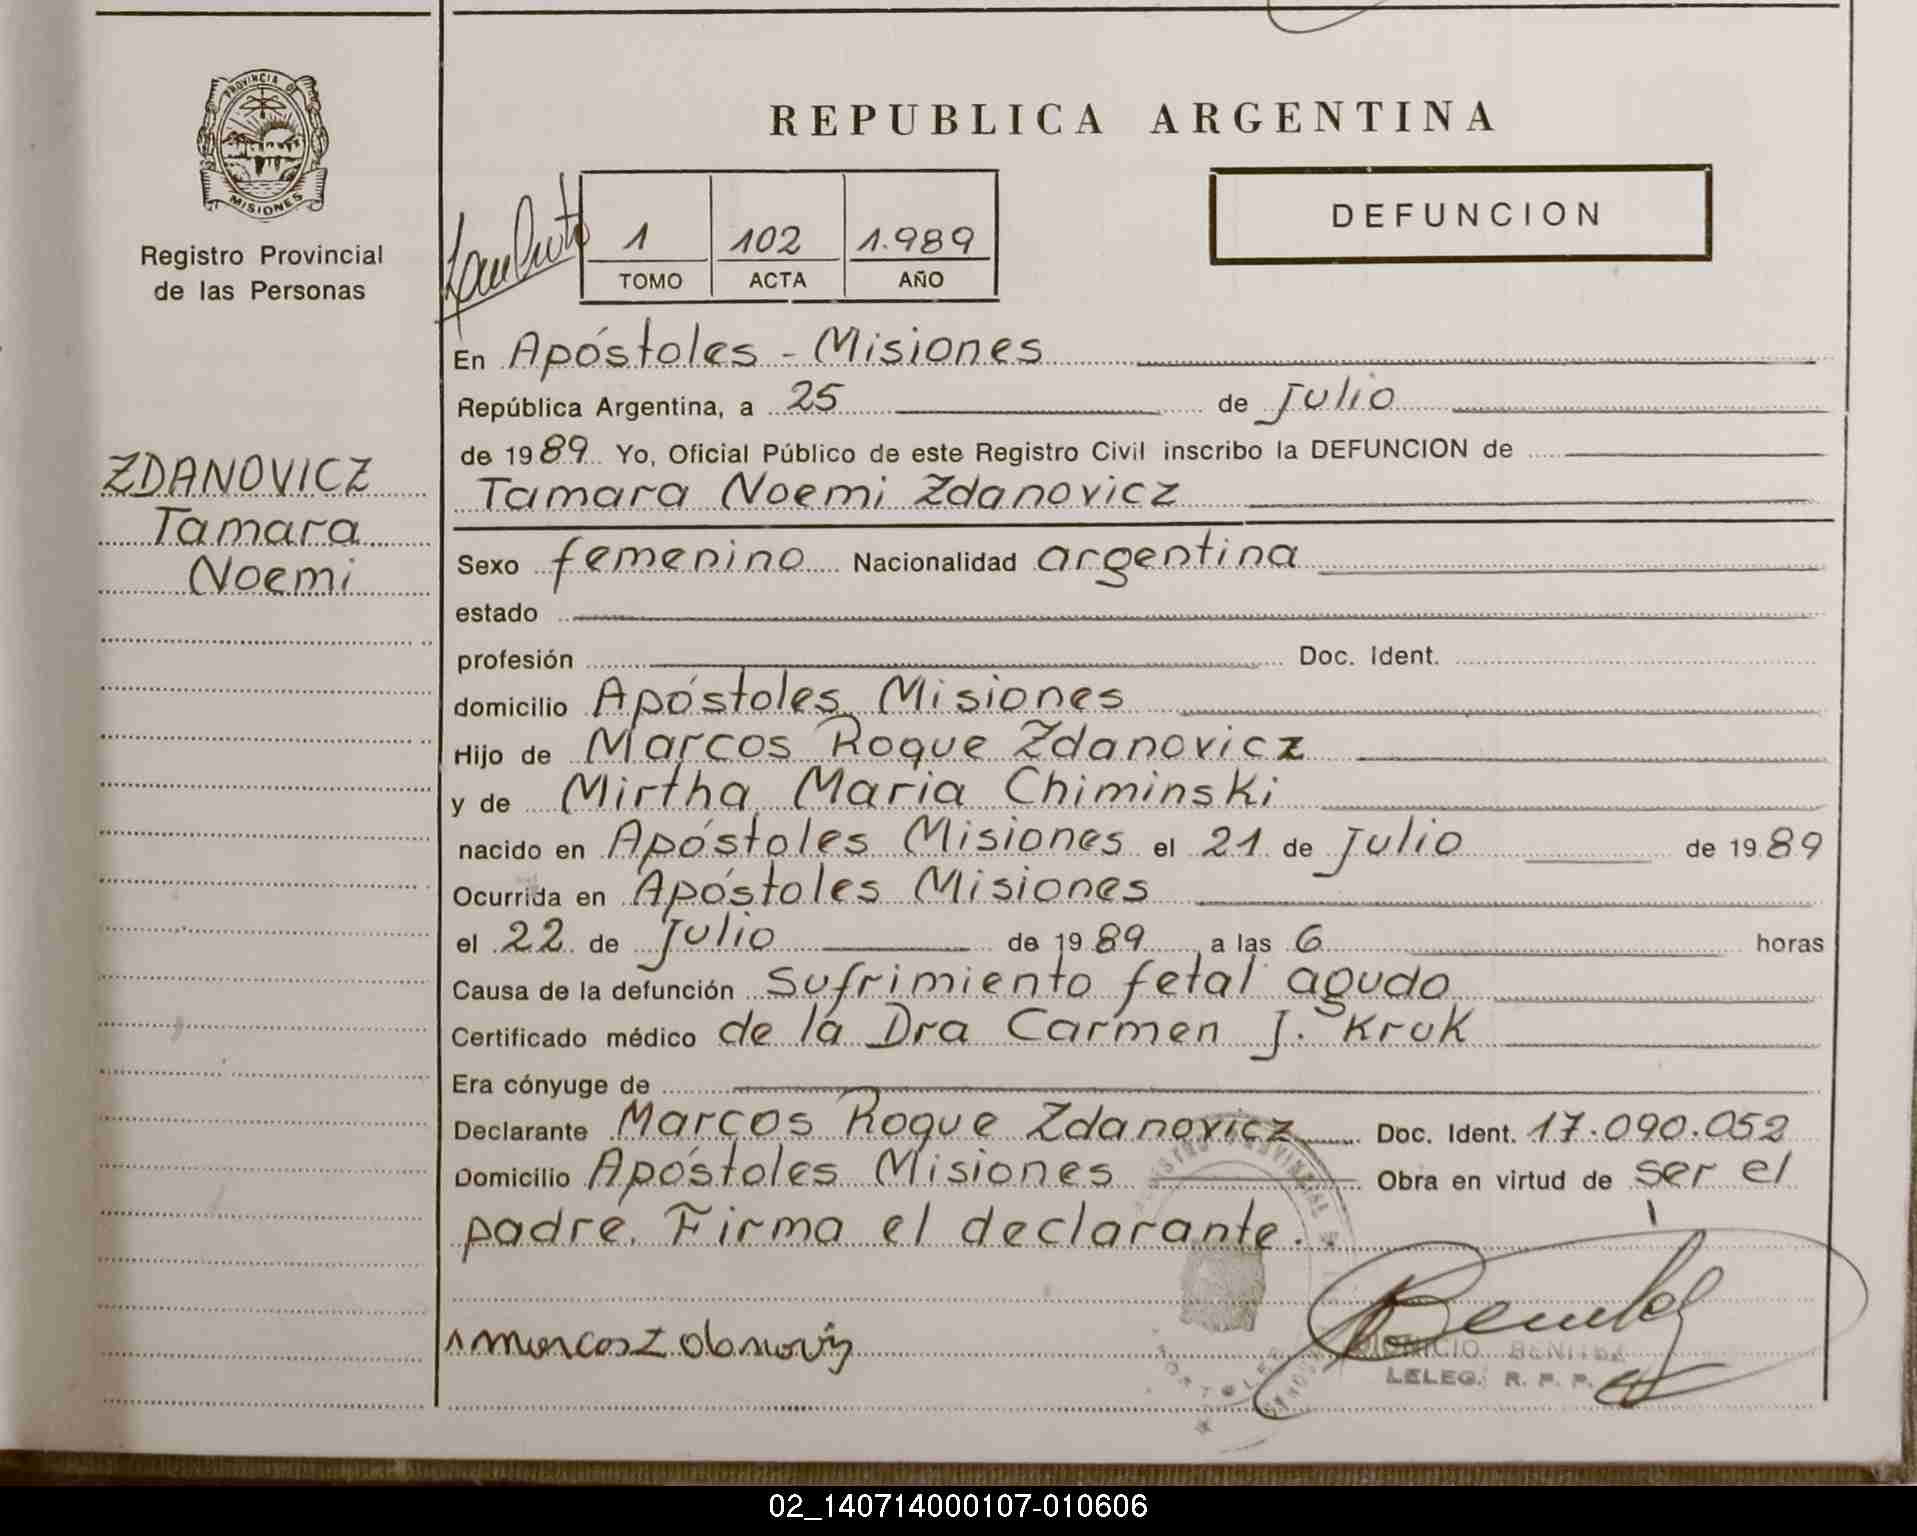 PROVINCIA DE
MISIONES
Registro Provincial
de las Personas
REPUBLICA ARGENTINA
DEFUNCION
1 102 1.989
TOMO ACTA AÑO
ZDANOVICZ
Tamara
Noemi
En Apóstoles - Misiones
República Argentina, a 25 de Julio
de 1989 Yo, Oficial Público de este Registro Civil inscribo la DEFUNCION de
Tamara Noemi Zdanovicz
Sexo femenino Nacionalidad argentina
estado
profesión Doc. Ident.
domicilio Apóstoles Misiones
Hijo de Marcos Roque Zdanovicz
y de Mirtha Maria Chiminski
nacido en Apóstoles Misiones el 21 de Julio de 1989
Ocurrida en Apóstoles Misiones
el 22 de Julio de 1989 a las 6 horas
Causa de la defunción Sufrimiento fetal agudo
Certificado médico de la Dra Carmen J. Kruk
Era cónyuge de
Declarante Marcos Roque Zdanovicz Doc. Ident. 17.090.052
Domicilio Apóstoles Misiones Obra en virtud de ser el
padre. Firma el declarante.
DIONICIO BENITEZ
DELEG. R. P. P.
02_140714000107-010606